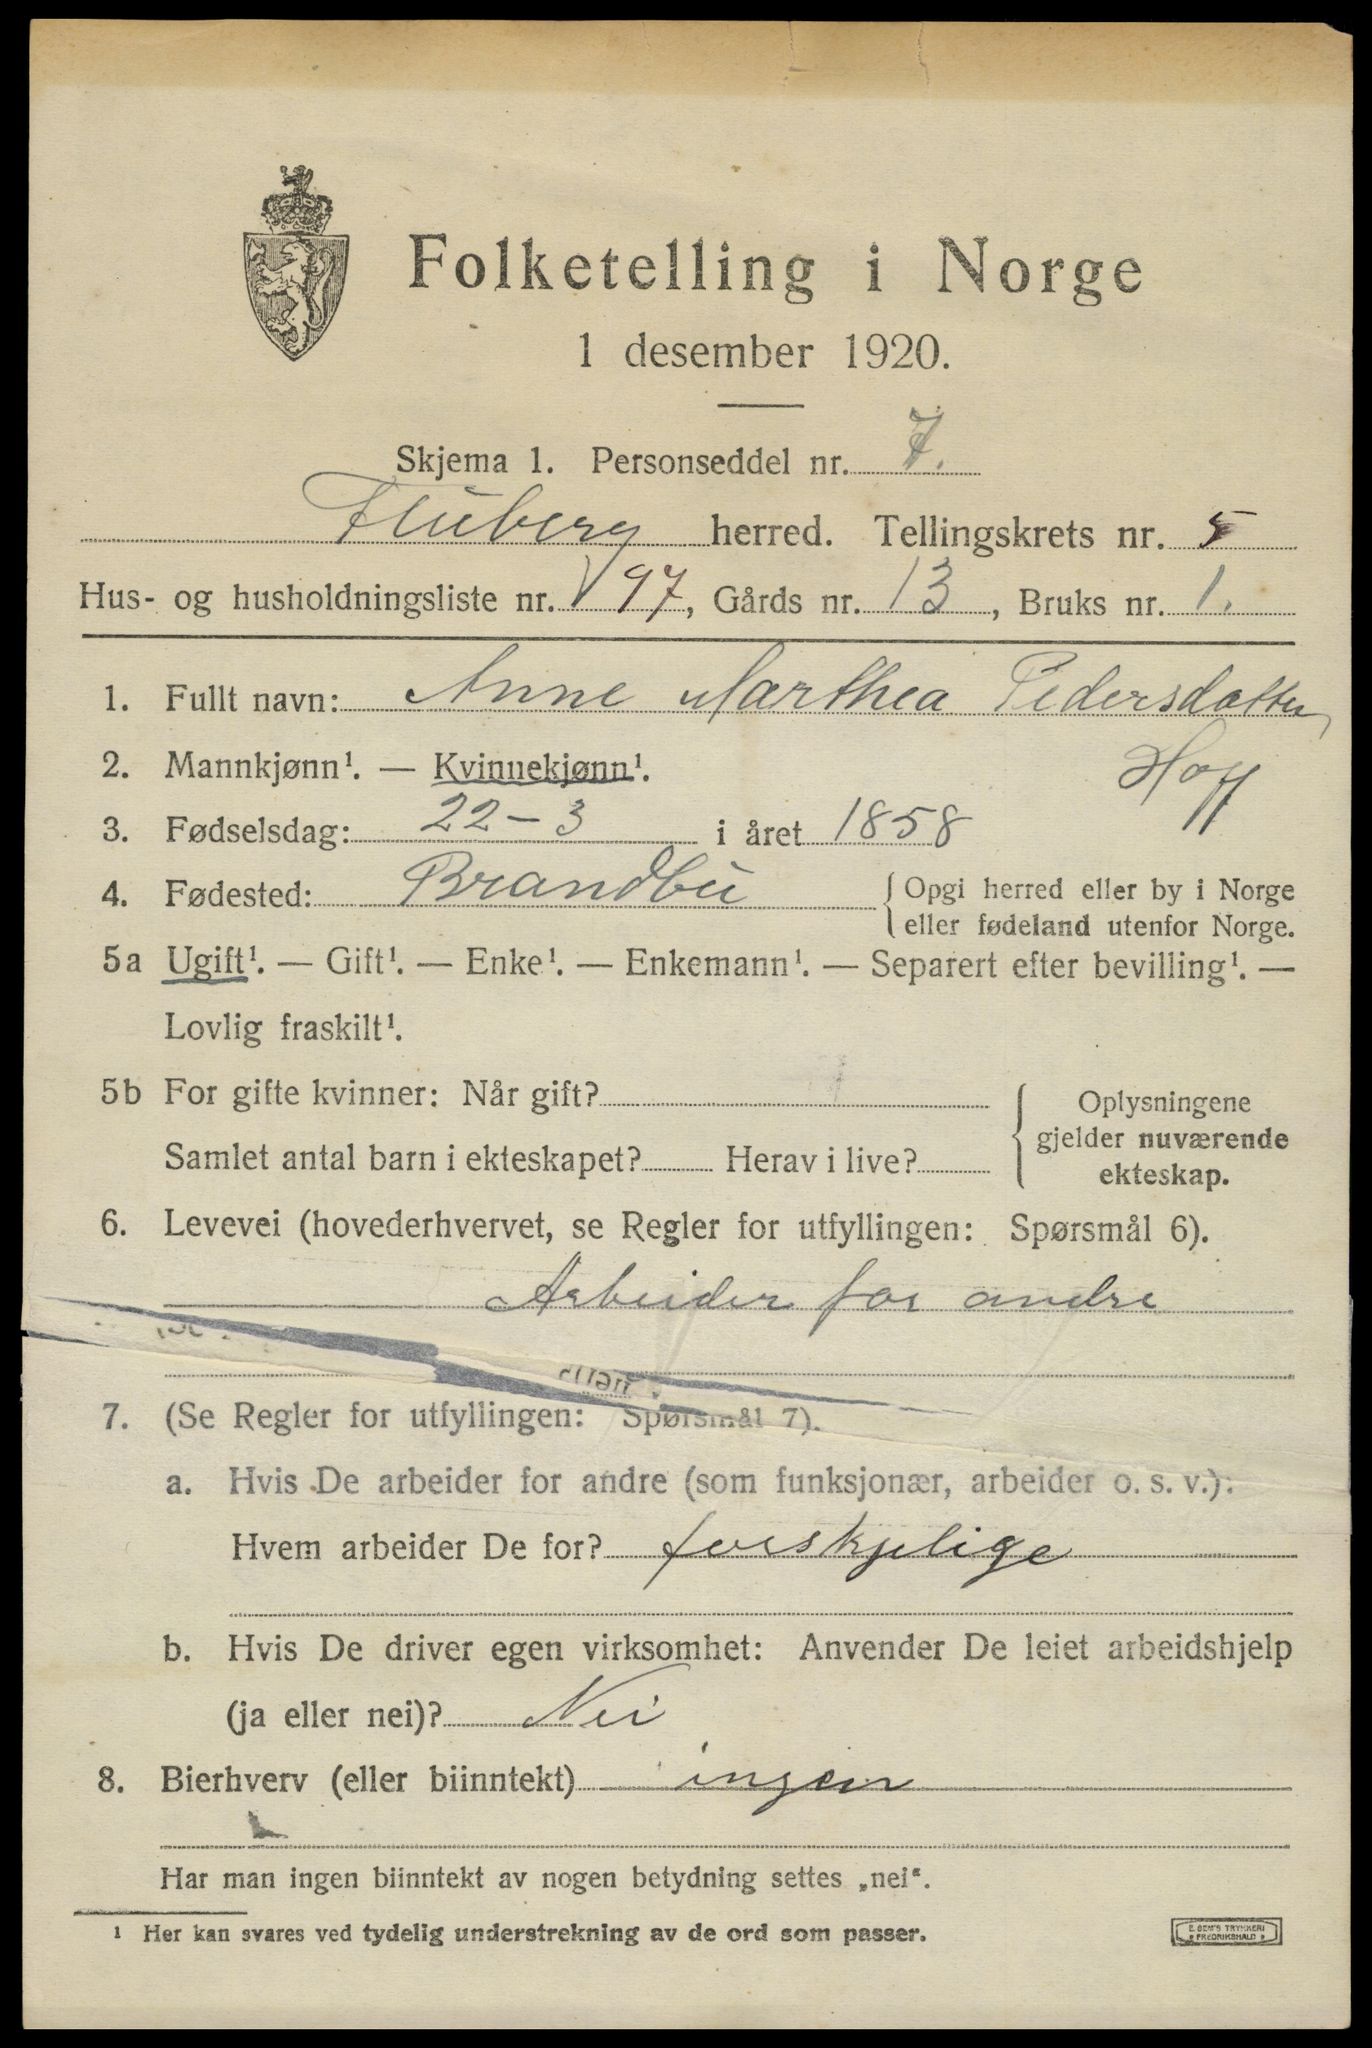 Folketelling i Norge
1 desember 1920.
Skjema 1. Personseddel nr. 7.
Fluberg herred. Tellingskrets nr. 5
Hus- og husholdningsliste nr. 97, Gårds nr. 13, Bruks nr. 1.
1. Fullt navn: Anne Marthea Pedersdatter
Hoff
2. Mannkjønn¹. — Kvinnekjønn¹.
3. Fødselsdag: 22-3 i året 1858
4. Fødested: Brandbu { Opgi herred eller by i Norge
eller fødeland utenfor Norge.
5a Ugift¹. — Gift¹. — Enke¹. — Enkemann¹. — Separert efter bevilling¹. —
Lovlig fraskilt¹.
5b For gifte kvinner: Når gift? { Oplysningene
gjelder nuværende
Samlet antal barn i ekteskapet? Herav i live?
ekteskap.
6. Levevei (hovederhvervet, se Regler for utfyllingen: Spørsmål 6).
Arbeider for andre
7. (Se Regler for utfyllingen: Spørsmål 7).
a. Hvis De arbeider for andre (som funksjonær, arbeider o. s. v.):
Hvem arbeider De for? forskjelige
b. Hvis De driver egen virksomhet: Anvender De leiet arbeidshjelp
(ja eller nei)? Nei
8. Bierhverv (eller biinntekt) ingen
Har man ingen biinntekt av nogen betydning settes „nei“.
¹ Her kan svares ved tydelig understrekning av de ord som passer.
E. SEM'S TRYKKERI
FREDRIKSHALD